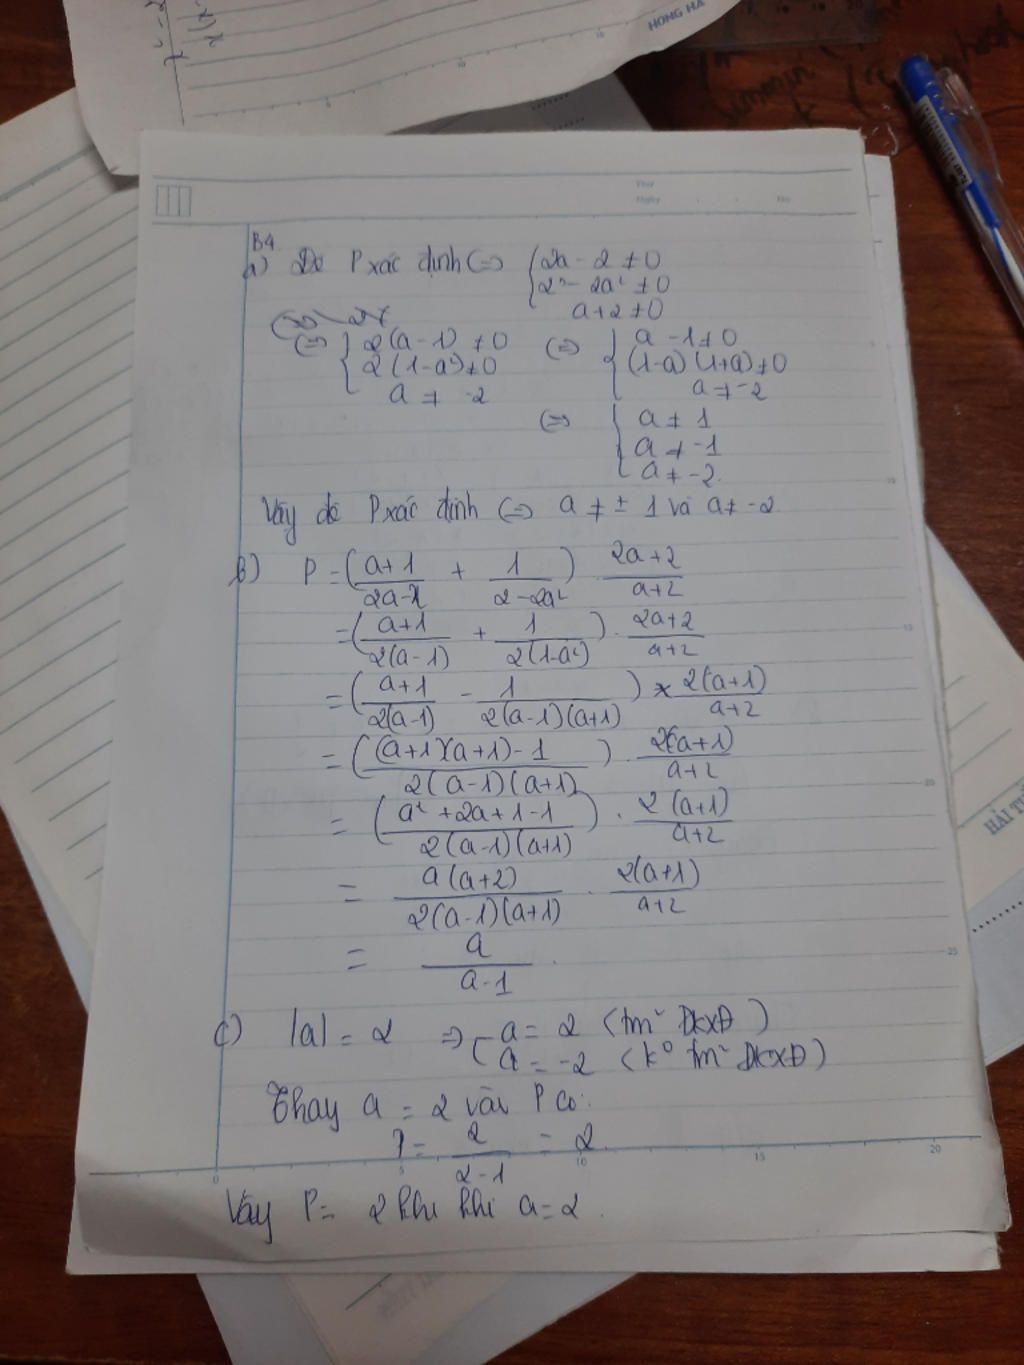 HONG HA
Thứ
Ngày
No
B4.
a) Để P xác định <=> { 2a - 2 ≠ 0
2 - 2a² ≠ 0
a + 2 ≠ 0
<=> { 2(a - 1) ≠ 0 <=> { a - 1 ≠ 0
2(1 - a²) ≠ 0 (1-a)(1+a) ≠ 0
a ≠ -2 a ≠ -2
<=> { a ≠ 1
a ≠ -1
a ≠ -2.
Vậy để P xác định <=> a ≠ ± 1 và a ≠ -2
b) P = ((a+1)/(2a-2) + 1/(2-2a²)) (2a+2)/(a+2)
= ((a+1)/(2(a-1)) + 1/(2(1-a²))) . (2a+2)/(a+2)
= ((a+1)/(2(a-1)) - 1/(2(a-1)(a+1))) × (2(a+1))/(a+2)
= (((a+1)(a+1)-1)/(2(a-1)(a+1))) . (2(a+1))/(a+2)
= ((a²+2a+1-1)/(2(a-1)(a+1))) . (2(a+1))/(a+2)
= (a(a+2))/(2(a-1)(a+1)) . (2(a+1))/(a+2)
= a/(a-1) .
c) |a| = 2 => [ a = 2 (tm² ĐKXĐ)
a = -2 (k⁰ tm² ĐKXĐ)
Thay a = 2 vào P có:
P = 2/(2-1) = 2.
Vậy P = 2 khi khi a = 2.
0 5 10 15 20
HẢI T